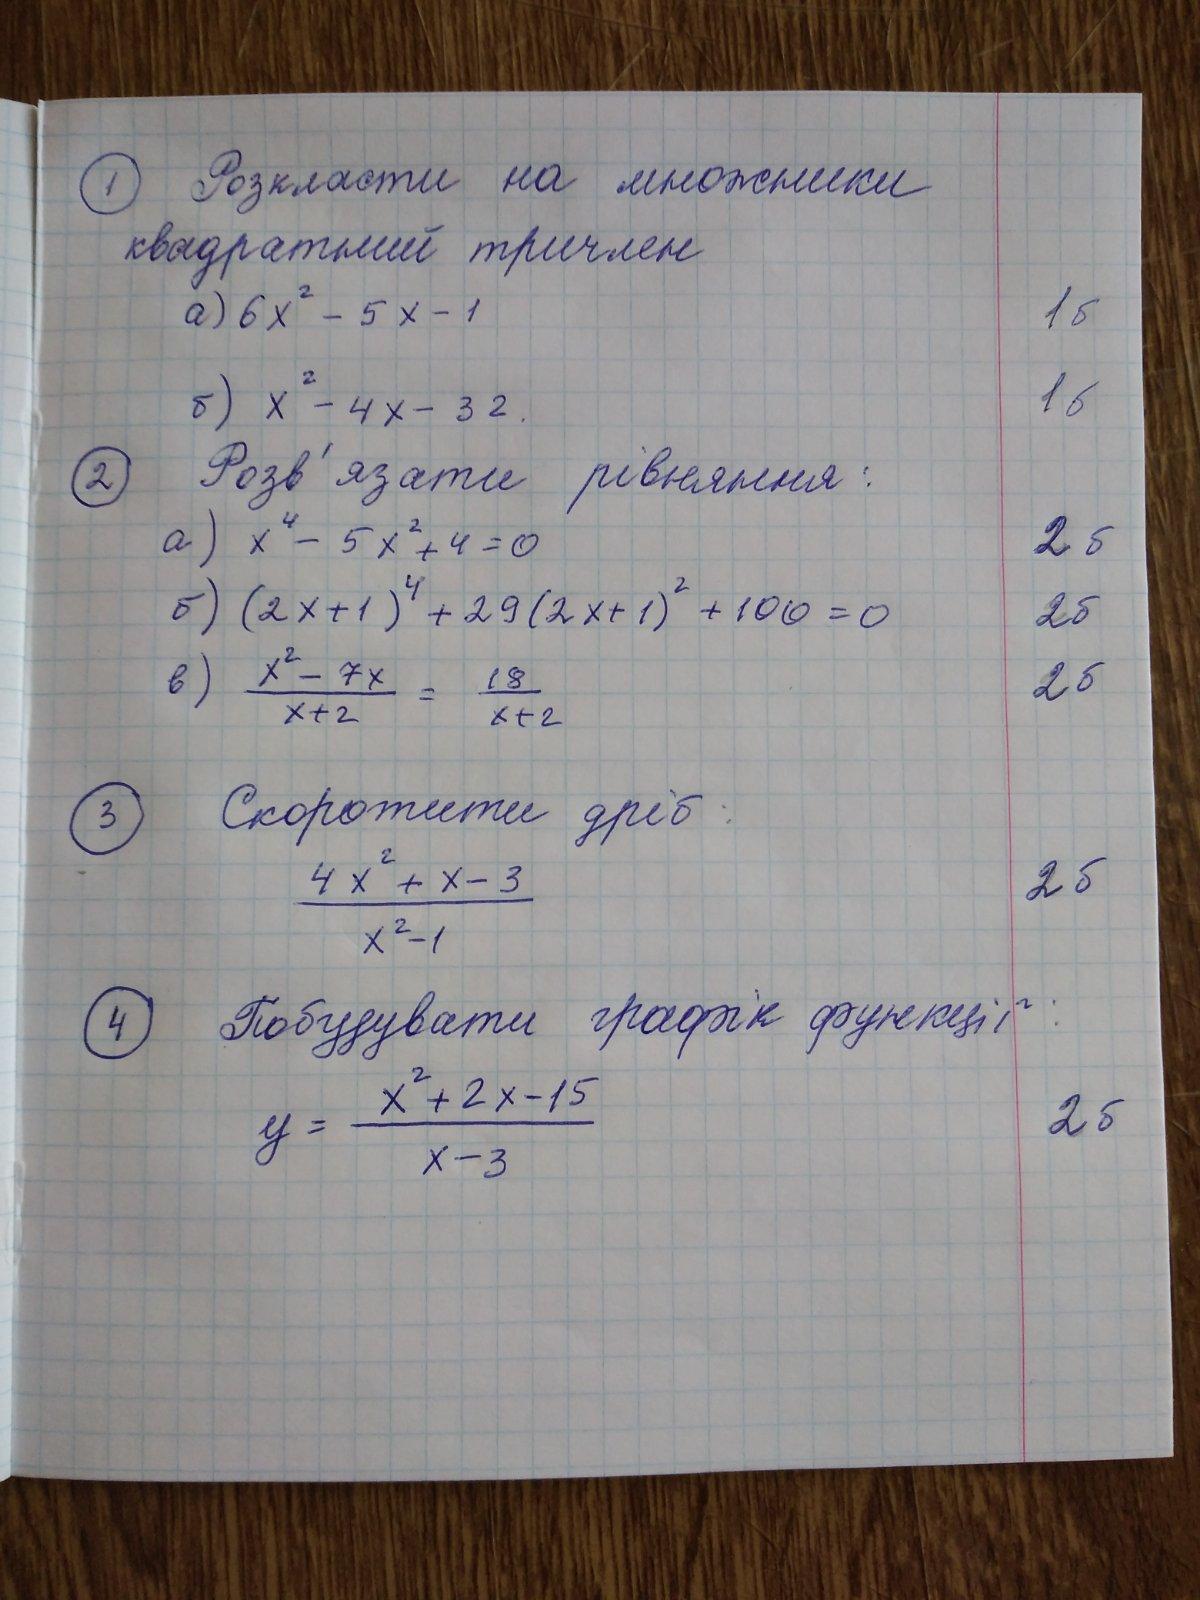 1 Розкласти на множники
квадратний тричлен
а) 6x² - 5x - 1 1б
б) x² - 4x - 32. 1б
2 Розв'язати рівняння:
а) x⁴ - 5x² + 4 = 0 2б
б) (2x+1)⁴ + 29(2x+1)² + 100 = 0 2б
в) (x² - 7x)/(x+2) = 18/(x+2) 2б
3 Скоротити дріб:
(4x² + x - 3)/(x² - 1) 2б
4 Побудувати графік функції:
y = (x² + 2x - 15)/(x - 3) 2б